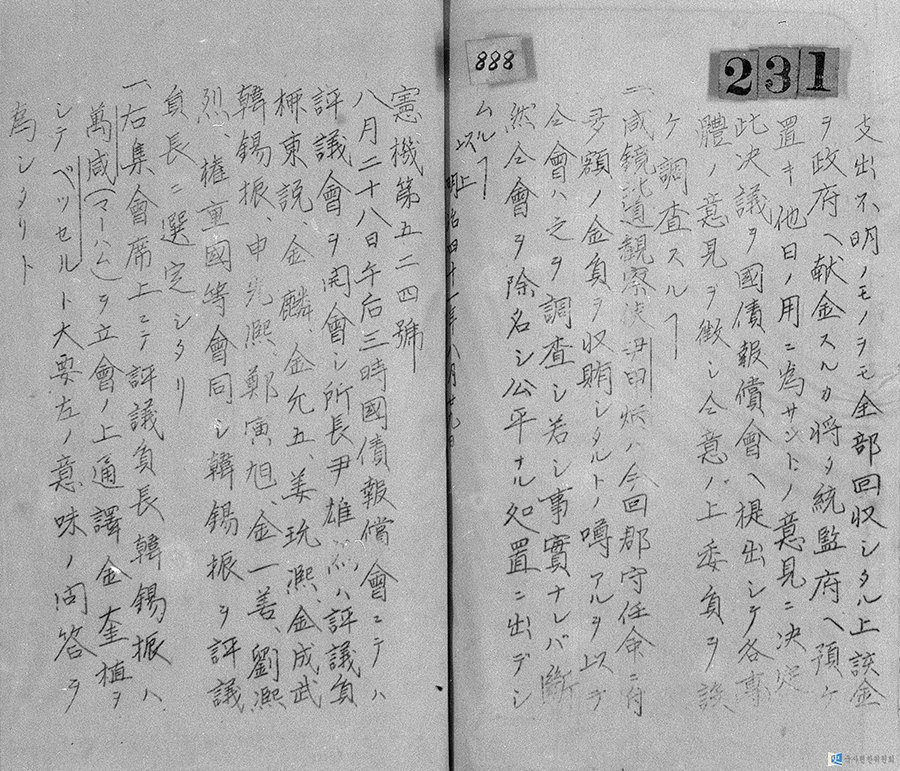 231
888
支出不明ノモノヲモ全部回収シタル上該金
ヲ政府ヘ献金スルカ将タ統監府ヘ預ケ
置キ他日ノ用ニ為サントノ意見ニ決定
此决議ヲ國債報償會ヘ提出シテ各
體ノ意見ヲ徴シ仝意ノ上委員ヲ設
ケ調査スルヿ
一、咸鏡北道観察使尹甲炳ハ今回郡守任命ニ付
多額ノ金員ヲ収賄シタルトノ噂アルヲ以テ
仝會ハ之ヲ調査シ若シ事實ナレバ斷
然仝會ヲ除名シ公平ナル処置ニ出デシ
ムルヿ
以上
明治四十一年八月廿九日
憲機第五二四號
八月二十八日午后三時國債報償會ニテハ
評議會ヲ開會シ所長尹雄烈ハ評議員
東説金麟、金允五、姜玧熙、金成武
韓錫振、申光熙、鄭寅旭、金一善、劉熙
烈、權重國等會同シ韓錫振ヲ評議
員長ニ選定シタリ
一、右集會席上ニテ評議員長韓錫振ハ
萬咸(マーハム)ヲ立會ノ上通譯金奎植ヲ
シテベッセルト大要左ノ意味ノ問答ヲ
為シタリト
국사편찬위원회